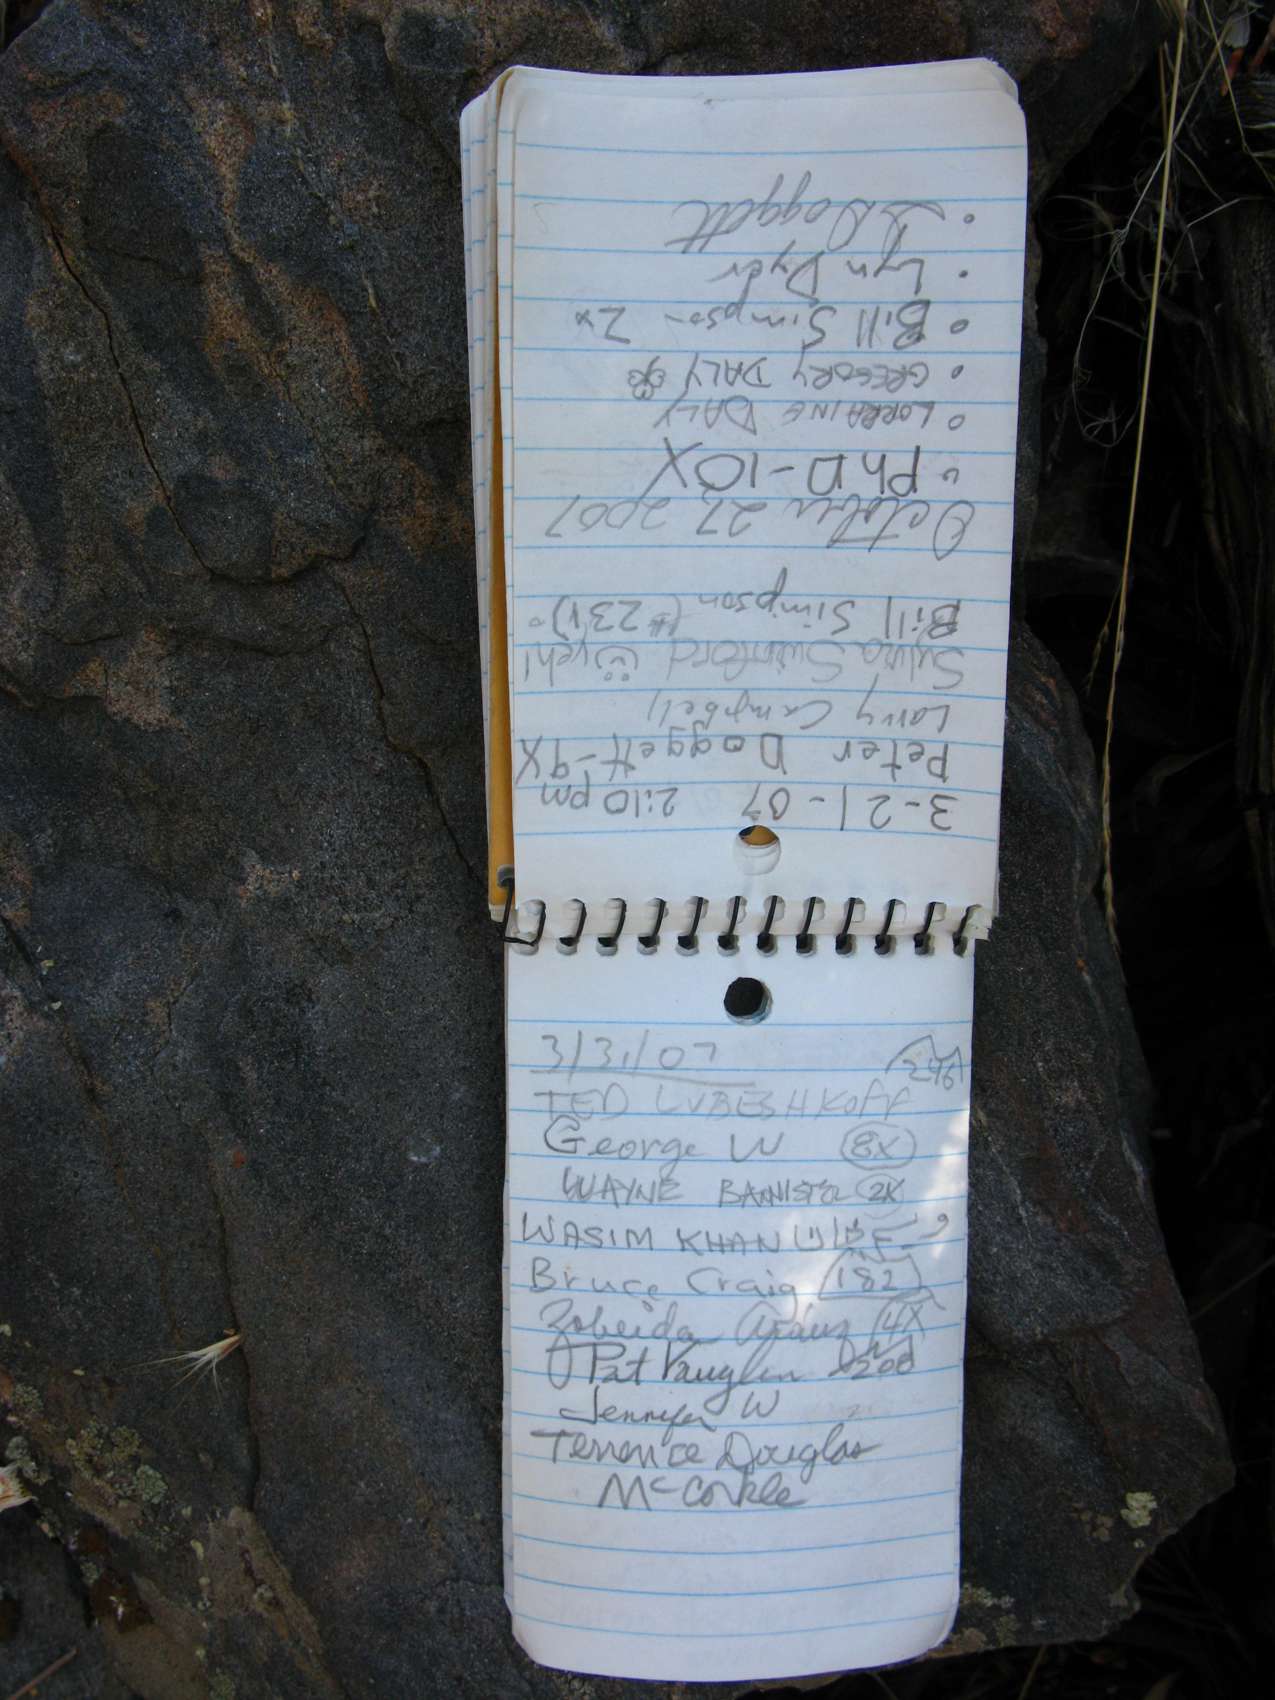 3-21-07 2:10 pm
Peter Doggett-9X
Larry Campbell
Sylvia Swinford yeh!
Bill Simpson (#231)
October 27 2007
PhD-10X
LORRAINE DALY
GREGORY DALY
Bill Simpson 2x
Lyn Dyer
Doggett
3/31/07
TED LUBESHKOFF
George W 8X
WAYNE BANNISTER 2X
WASIM KHAN
Bruce Craig 182
Zobeida Arauz 14X
Pat Vaughn 200
Jennifer W
Terrence Douglas
McCorkle